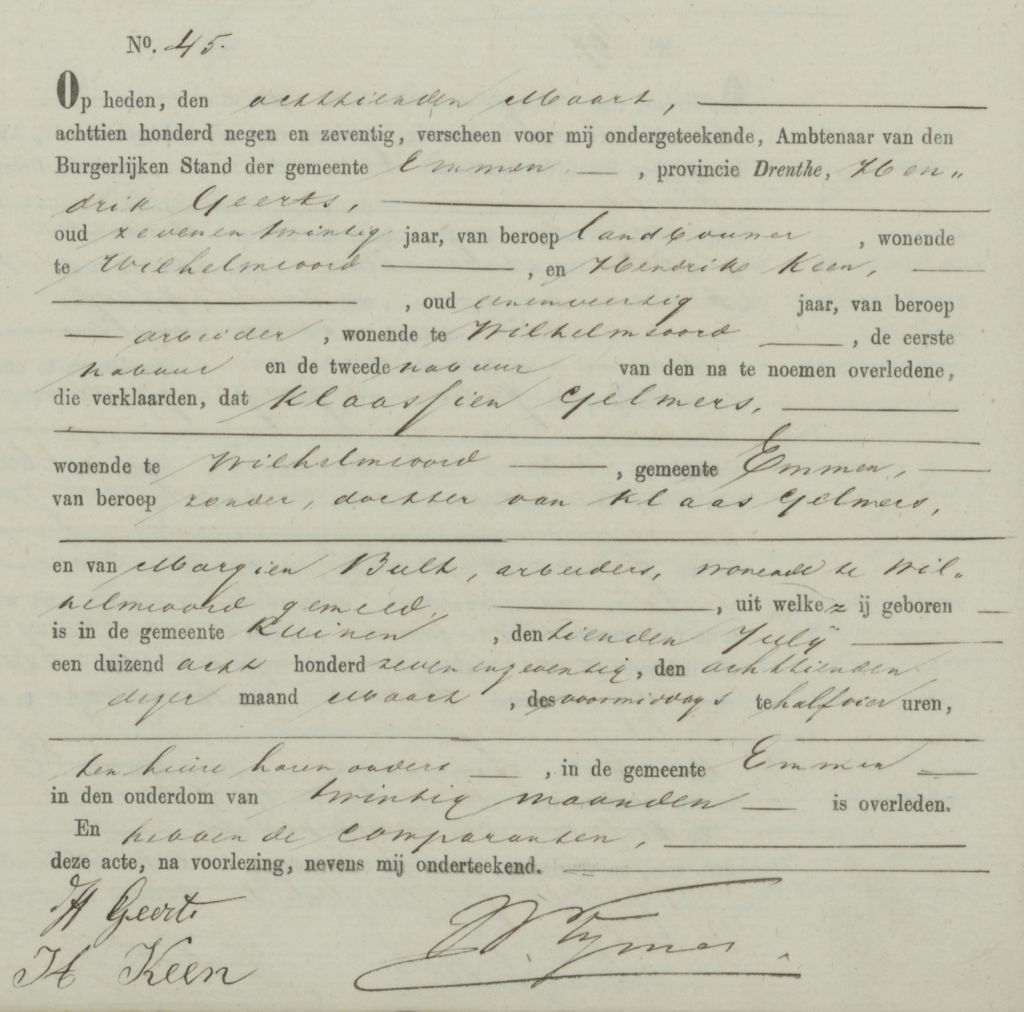 No. 45.
Op heden, den achttienden Maart,
achttien honderd negen en zeventig, verscheen voor mij ondergeteekende, Ambtenaar van den
Burgerlijken Stand der gemeente Emmen, provincie Drenthe, Hen„
drik Geerts,
oud zevenentwintig jaar, van beroep landbouwer, wonende
te Wilhelmsoord, en Hendrik Keen,
, oud eenenveertig jaar, van beroep
arbeider, wonende te Wilhelmsoord, de eerste
nabuur en de tweede nabuur van den na te noemen overledene,
die verklaarden, dat Klaassien Gelmers,
wonende te Wilhelmsoord, gemeente Emmen,
van beroep zonder, dochter van Klaas Gelmers,
en van Margien Bult, arbeiders, wonende te Wil„
helmsoord gemeld, uit welke zij geboren
is in de gemeente Kuinen, den tienden Julij
een duizend acht honderd zeven en zeventig, den achttienden
dezer maand Maart, des voormiddags te half vier uren,
ten huize harer ouders, in de gemeente Emmen
in den ouderdom van twintig maanden is overleden.
En hebben de comparanten,
deze acte, na voorlezing, nevens mij onderteekend.
H Geerts
H Keen